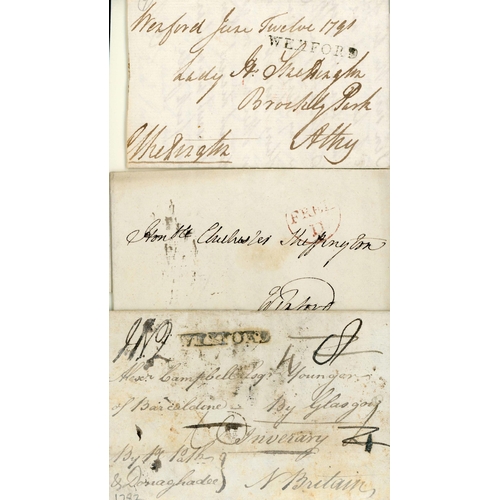 Wexford June Twelve 1790
WEXFORD
Lady H. Skeffington
Brockley Park
Athy
Skeffington
FREE
11
Honble Chichester Skeffington
Wexford
WEXFORD
4 8
Alexr Campbell Esqr Younger
of Barcaldine By Glasgow
Inverary
By Pt Patk
& Donaghadee N Britain
1792